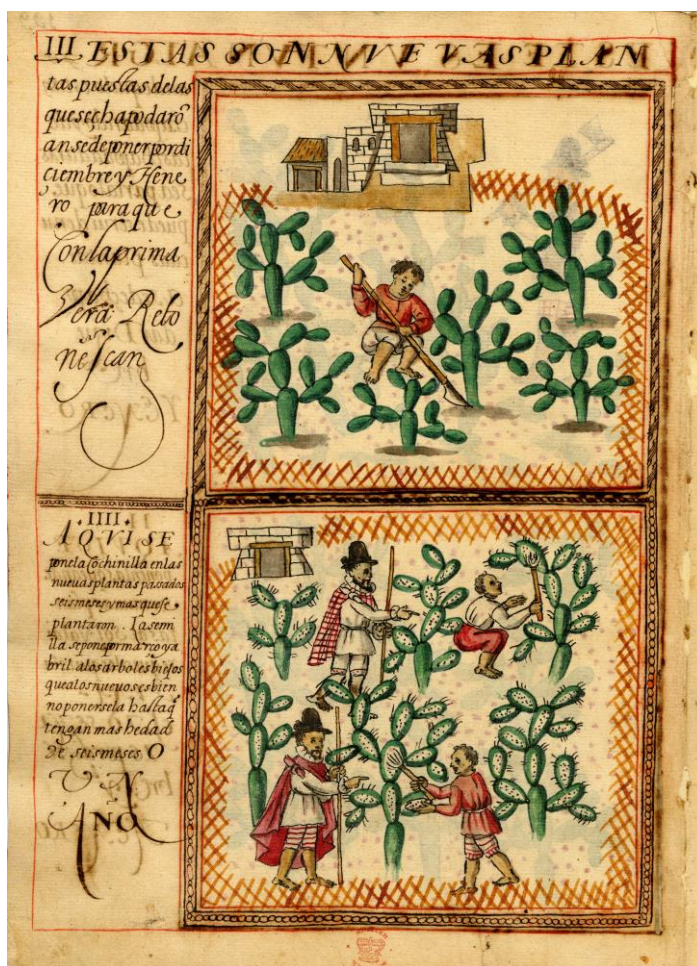 III. ESTAS SON NVEVAS PLAN
tas puestas delas
que sechapodarõ
an sede poner por di
ciembre y Hene
ro para que
Con la prima
Vera Reto
ñescan
.IIII.
AQVI SE
pone la Cochinilla en las
nueuas plantas pasados
seis meses y mas que se
plantaron. La semi
lla se pone por março ya
bril. a los arboles biejos
que a los nuevos es bien
no ponersela hasta q̃
tengan mas hedad
De seis meses O
VN
AÑO